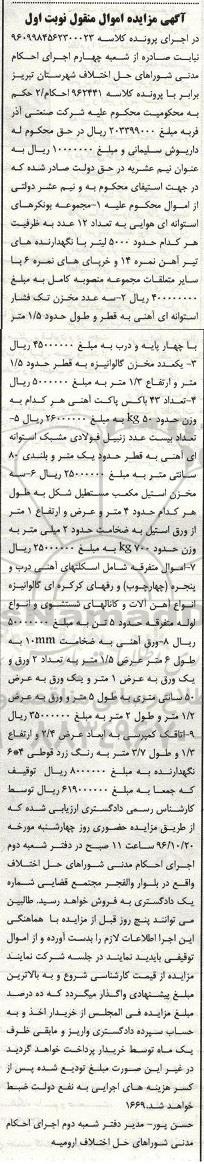 آگهی مزایده اموال منقول نوبت اول
در اجرای پرونده کلاسه ۹۶۰۹۹۸۴۵۶۲۳۰۰۰۲۳
نیابت صادره از شعبه چهارم اجرای احکام
مدنی شوراهای حل اختلاف شهرستان تبریز
برابر با پرونده کلاسه ۹۶۲۴۴۱ احکام/۲ حکم
به محکومیت محکوم علیه شرکت صنعتی آذر
فربه مبلغ ۲۰۳۳۹۹۰۰۰ ریال در حق محکوم له
داریوش سلیمانی و مبلغ ۱۰۰۰۰۰۰۰ ریال به
عنوان نیم عشریه در حق دولت صادر شده که
در جهت استیفای محکوم به و نیم عشر دولتی
از اموال محکوم علیه ۱-مجموعه بونکرهای
استوانه ای هوایی به تعداد ۱۲ عدد به ظرفیت
هر کدام حدود ۵۰۰۰ لیتر با نگهدارنده های
تیر آهن نمره ۱۴ و خرپای های نمره ۶ با
سایر متعلقات مجموعه منصوبه کامل به مبلغ
۴۰۰۰۰۰۰۰۰ ریال ۲-سه عدد مخزن تک فشار
استوانه ای آهنی به قطر و طول حدود ۱/۵ متر
با چهار پایه و درب به مبلغ ۴۵۰۰۰۰۰۰ ریال
۳- یکعدد مخزن گالوانیزه به قطر حدود ۱/۵
متر و ارتفاع ۱/۳ متر به مبلغ ۵۰۰۰۰۰۰ ریال
۴-تعداد ۴۳ باکس پاکت آهنی هر کدام به
وزن حدود ۵۰ kg به مبلغ ۲۶۰۰۰۰۰۰ ریال ۵-
تعداد بیست عدد زنبیل فولادی مشبک استوانه
ای آهنی به قطر حدود یک متر و بلندی ۸۰
سانتی متر به مبلغ ۲۵۰۰۰۰۰۰ ریال ۶-سه
مخزن استیل مکعب مستطیل شکل به طول
هر کدام حدود ۴ متر و عرض و ارتفاع ۱ متر
از ورق استیل به ضخامت حدود ۲ میلی متر به
وزن حدود ۷۰۰ kg به مبلغ ۲۵۰۰۰۰۰۰ ریال
۷-اموال متفرقه شامل اسکلتهای آهنی درب و
پنجره (چهارچوب) و رفهای کرکره ای گالوانیزه
انواع آهن آلات و کانالهای شستشوی و انواع
لوله متفرقه حدود ۵ تن به مبلغ ۵۰۰۰۰۰۰۰
ریال ۸-ورق آهنی به ضخامت ۱۰mm به
طول ۶ متر عرض ۱/۵ متر به تعداد ۲ ورق و
یک ورق به عرض ۱ متر و یک ورق به عرض
۵۰ سانتی متری به طول ۵ متر و ورق به عرض
۱/۲ متر و طول ۲ متر به مبلغ ۳۵۰۰۰۰۰۰ ریال
۹-اتاقک کمپرسی به ابعاد عرض ۲/۴ و ارتفاع
۱/۳ و طول ۳/۷ متر به رنگ زرد قوطی ۴*۶
نگهدارنده به مبلغ ۸۰۰۰۰۰۰ ریال توقیف
که جمعا به مبلغ ۶۱۹۰۰۰۰۰۰ ریال توسط
کارشناس رسمی دادگستری ارزیابی شده که
از طریق مزایده حضوری روز چهارشنبه مورخه
۹۶/۱۰/۲۰ ساعت ۱۱ صبح در دفتر شعبه دوم
اجرای احکام مدنی شوراهای حل اختلاف
واقع در بلوار والفجر مجتمع قضایی شماره
یک دادگستری به فروش خواهد رسید. طالبین
می توانند پنج روز قبل از مزایده با هماهنگی
این اجرا اطلاعات لازم را بدست آورده و از اموال
توقیفی بازدید نمایند در جلسه شرکت نمایند
مزایده از قیمت کارشناسی شروع و به بالاترین
مبلغ پیشنهادی واگذار میگردد که ده درصد
مبلغ مزایده فی المجلس از خریدار اخذ و به
حساب سپرده دادگستری واریز و مابقی ظرف
یک ماه توسط خریدار پرداخت خواهد گردید
در غیر این صورت مبلغ تودیع شده پس از
کسر هزینه های اجرایی به نفع دولت ضبط
خواهد شد.۱۶۶۹
حسن پور- مدیر دفتر شعبه دوم اجرای احکام
مدنی شوراهای حل اختلاف ارومیه